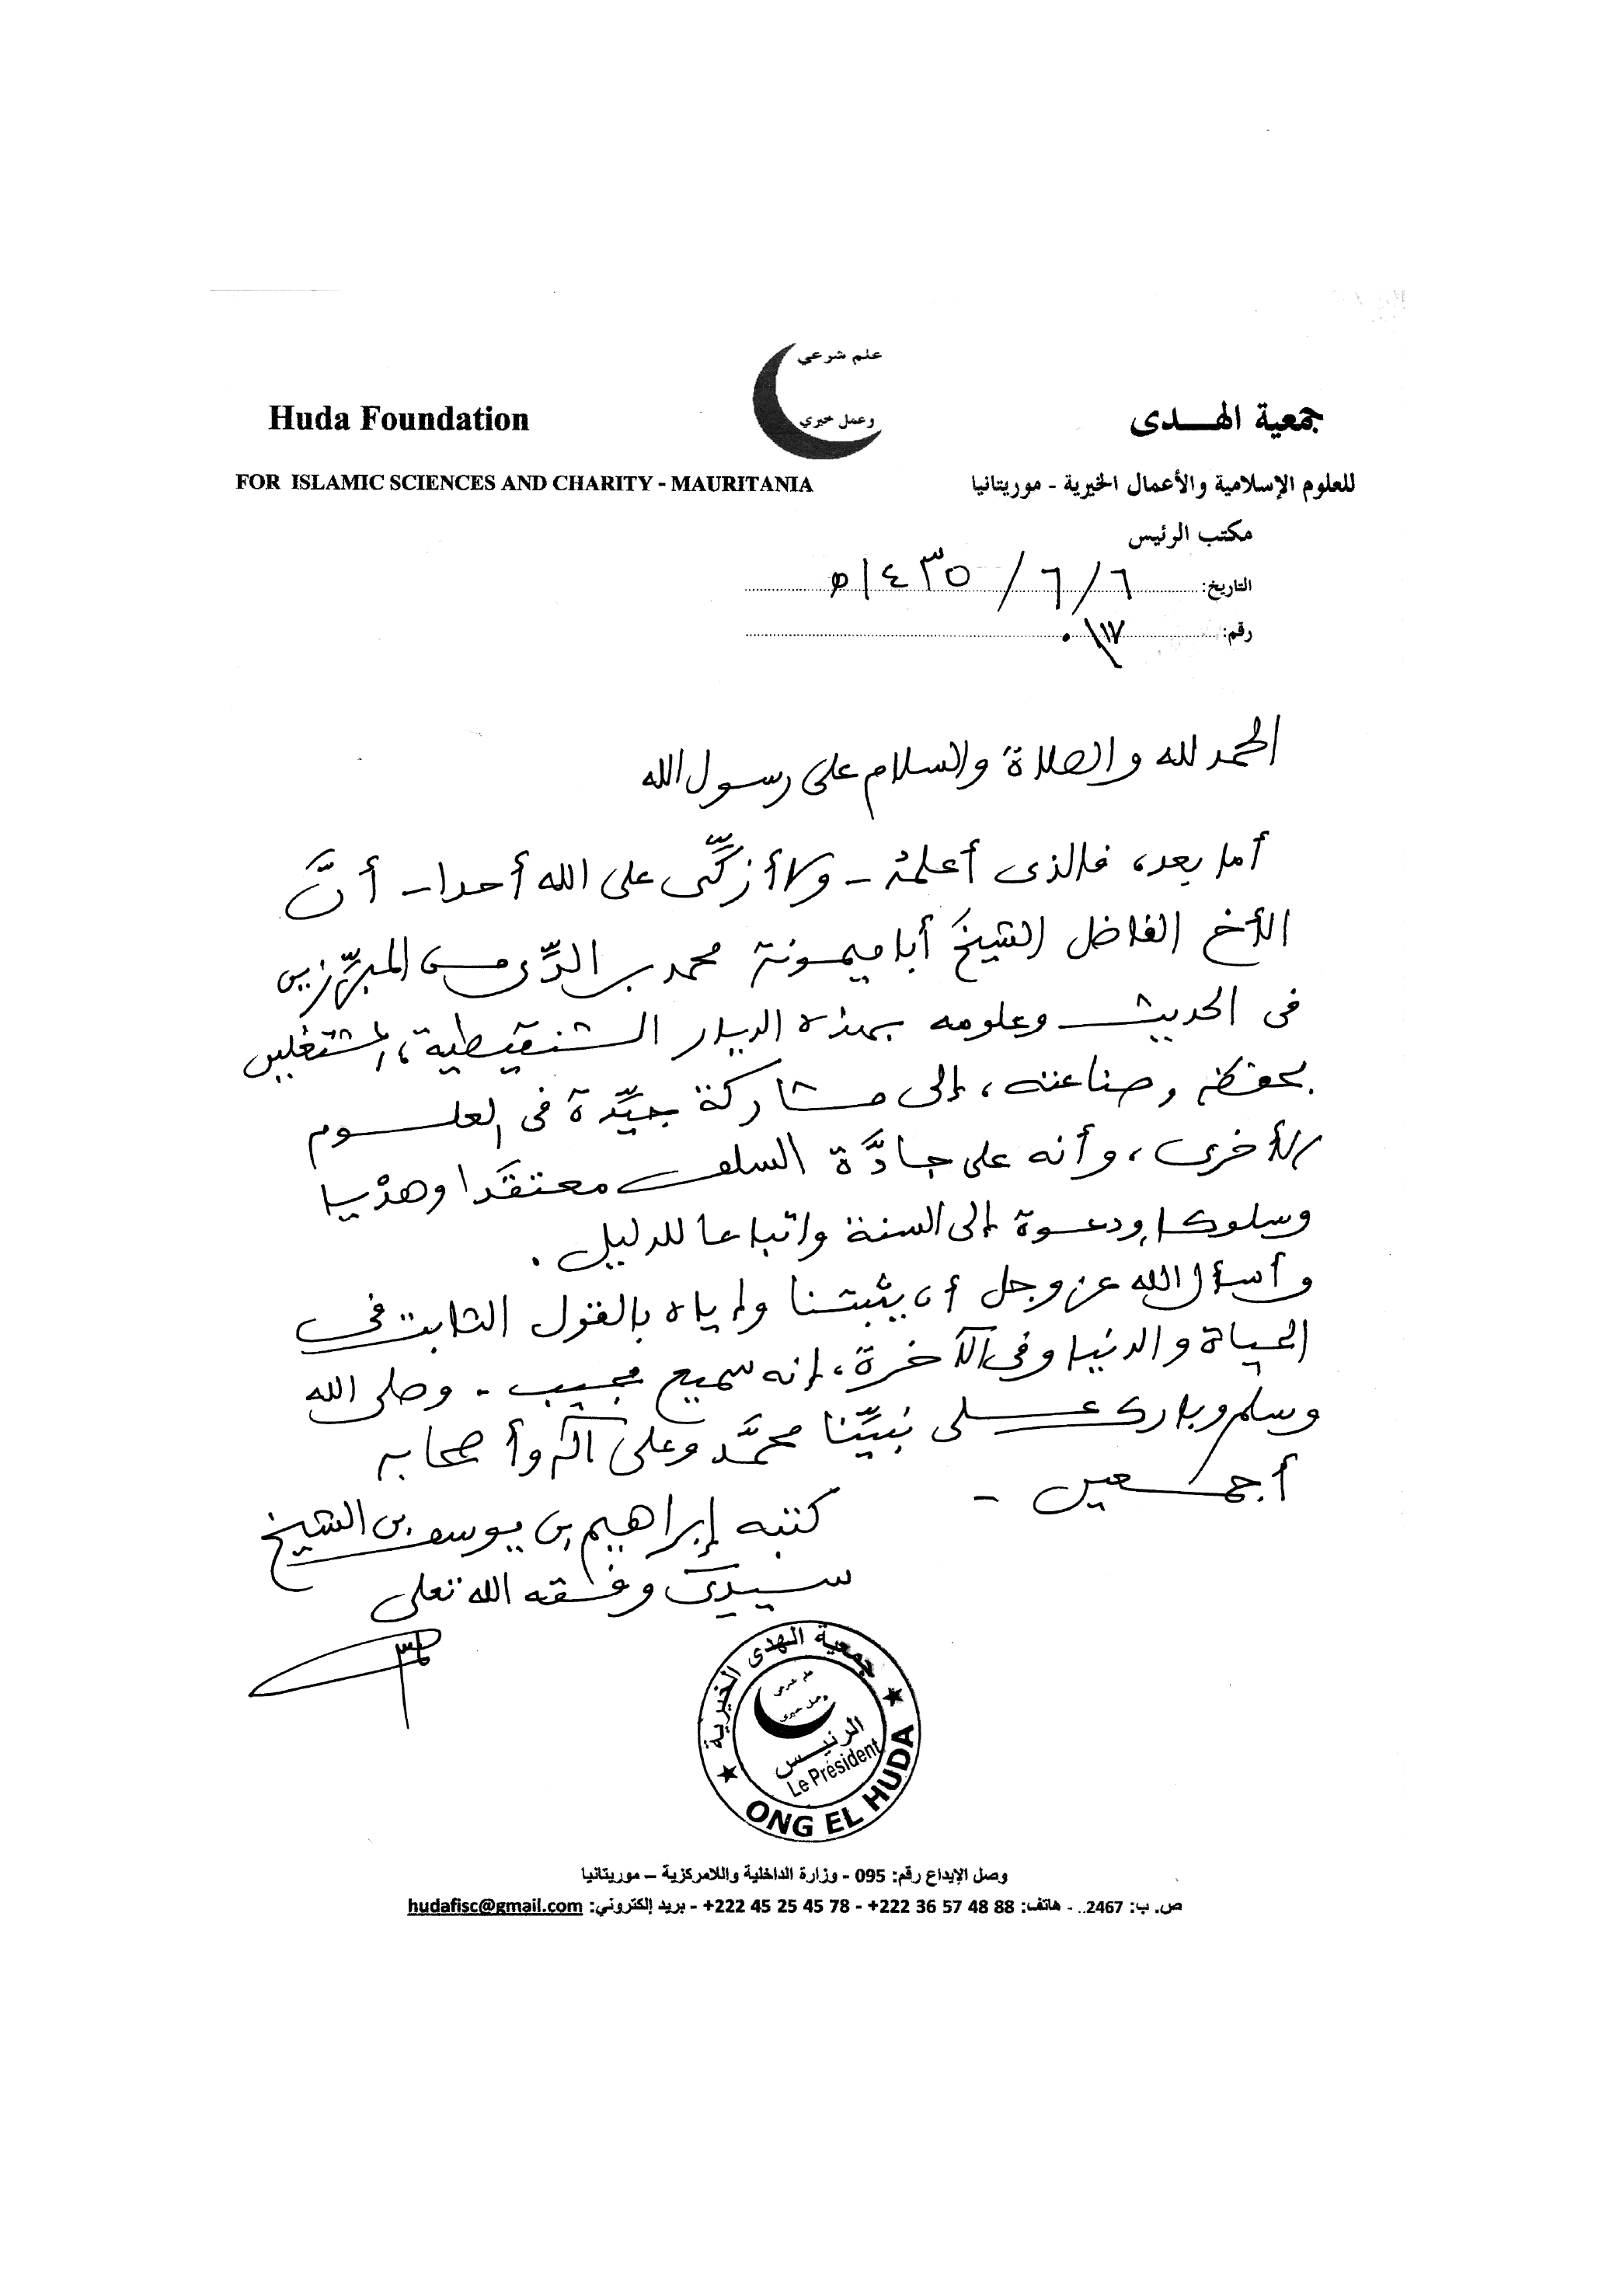 علم شرعي
وعمل خيري
Huda Foundation
جمعية الهــدى
FOR ISLAMIC SCIENCES AND CHARITY - MAURITANIA
للعلوم الإسلامية والأعمال الخيرية - موريتانيا
مكتب الرئيس
التاريخ: ٦/٦/١٤٣٥ه
رقم: ١٧\٠
الحمد لله والصلاة والسلام على رسول الله
أما بعد، فالذى أعلمُ - ولا أزكِّى على الله أحدا - أنَّ
الأخ الفاضل الشيخَ أبا ميمونة محمد بن الدِّ من المبرِّزين
فى الحديث وعلومه بهذه الديار الشنقيطية، المشتغلين
بحفظه وصناعته، إلى مشاركة جيِّدة فى العلوم
الأخرى، وأنه على جادَّة السلف معتقَدا وهدْيا
وسلوكا ودعوة إلى السنة واتباعا للدليل.
وأسأل الله عز وجل أن يثبتنا وإياه بالقول الثابت فى
الحياة والدنيا وفى الآخرة، إنه سميع مجيب - وصلى الله
وسلم وبارك على نبيِّنا محمَّد وعلى آله وأصحابه
أجمعين -
كتبه إبراهيم بن يوسف بن الشيخ
سيدي وفقه الله تعلى
جمعية الهدى الخيرية
علم شرعي
وعمل خيري
الرئيس
Le Président
ONG EL HUDA
وصل الإيداع رقم: 095 - وزارة الداخلية واللامركزية – موريتانيا
ص. ب: 2467.. - هاتف: 88 48 57 36 222+ - 78 45 25 45 222+ - بريد إلكتروني: hudafisc@gmail.com